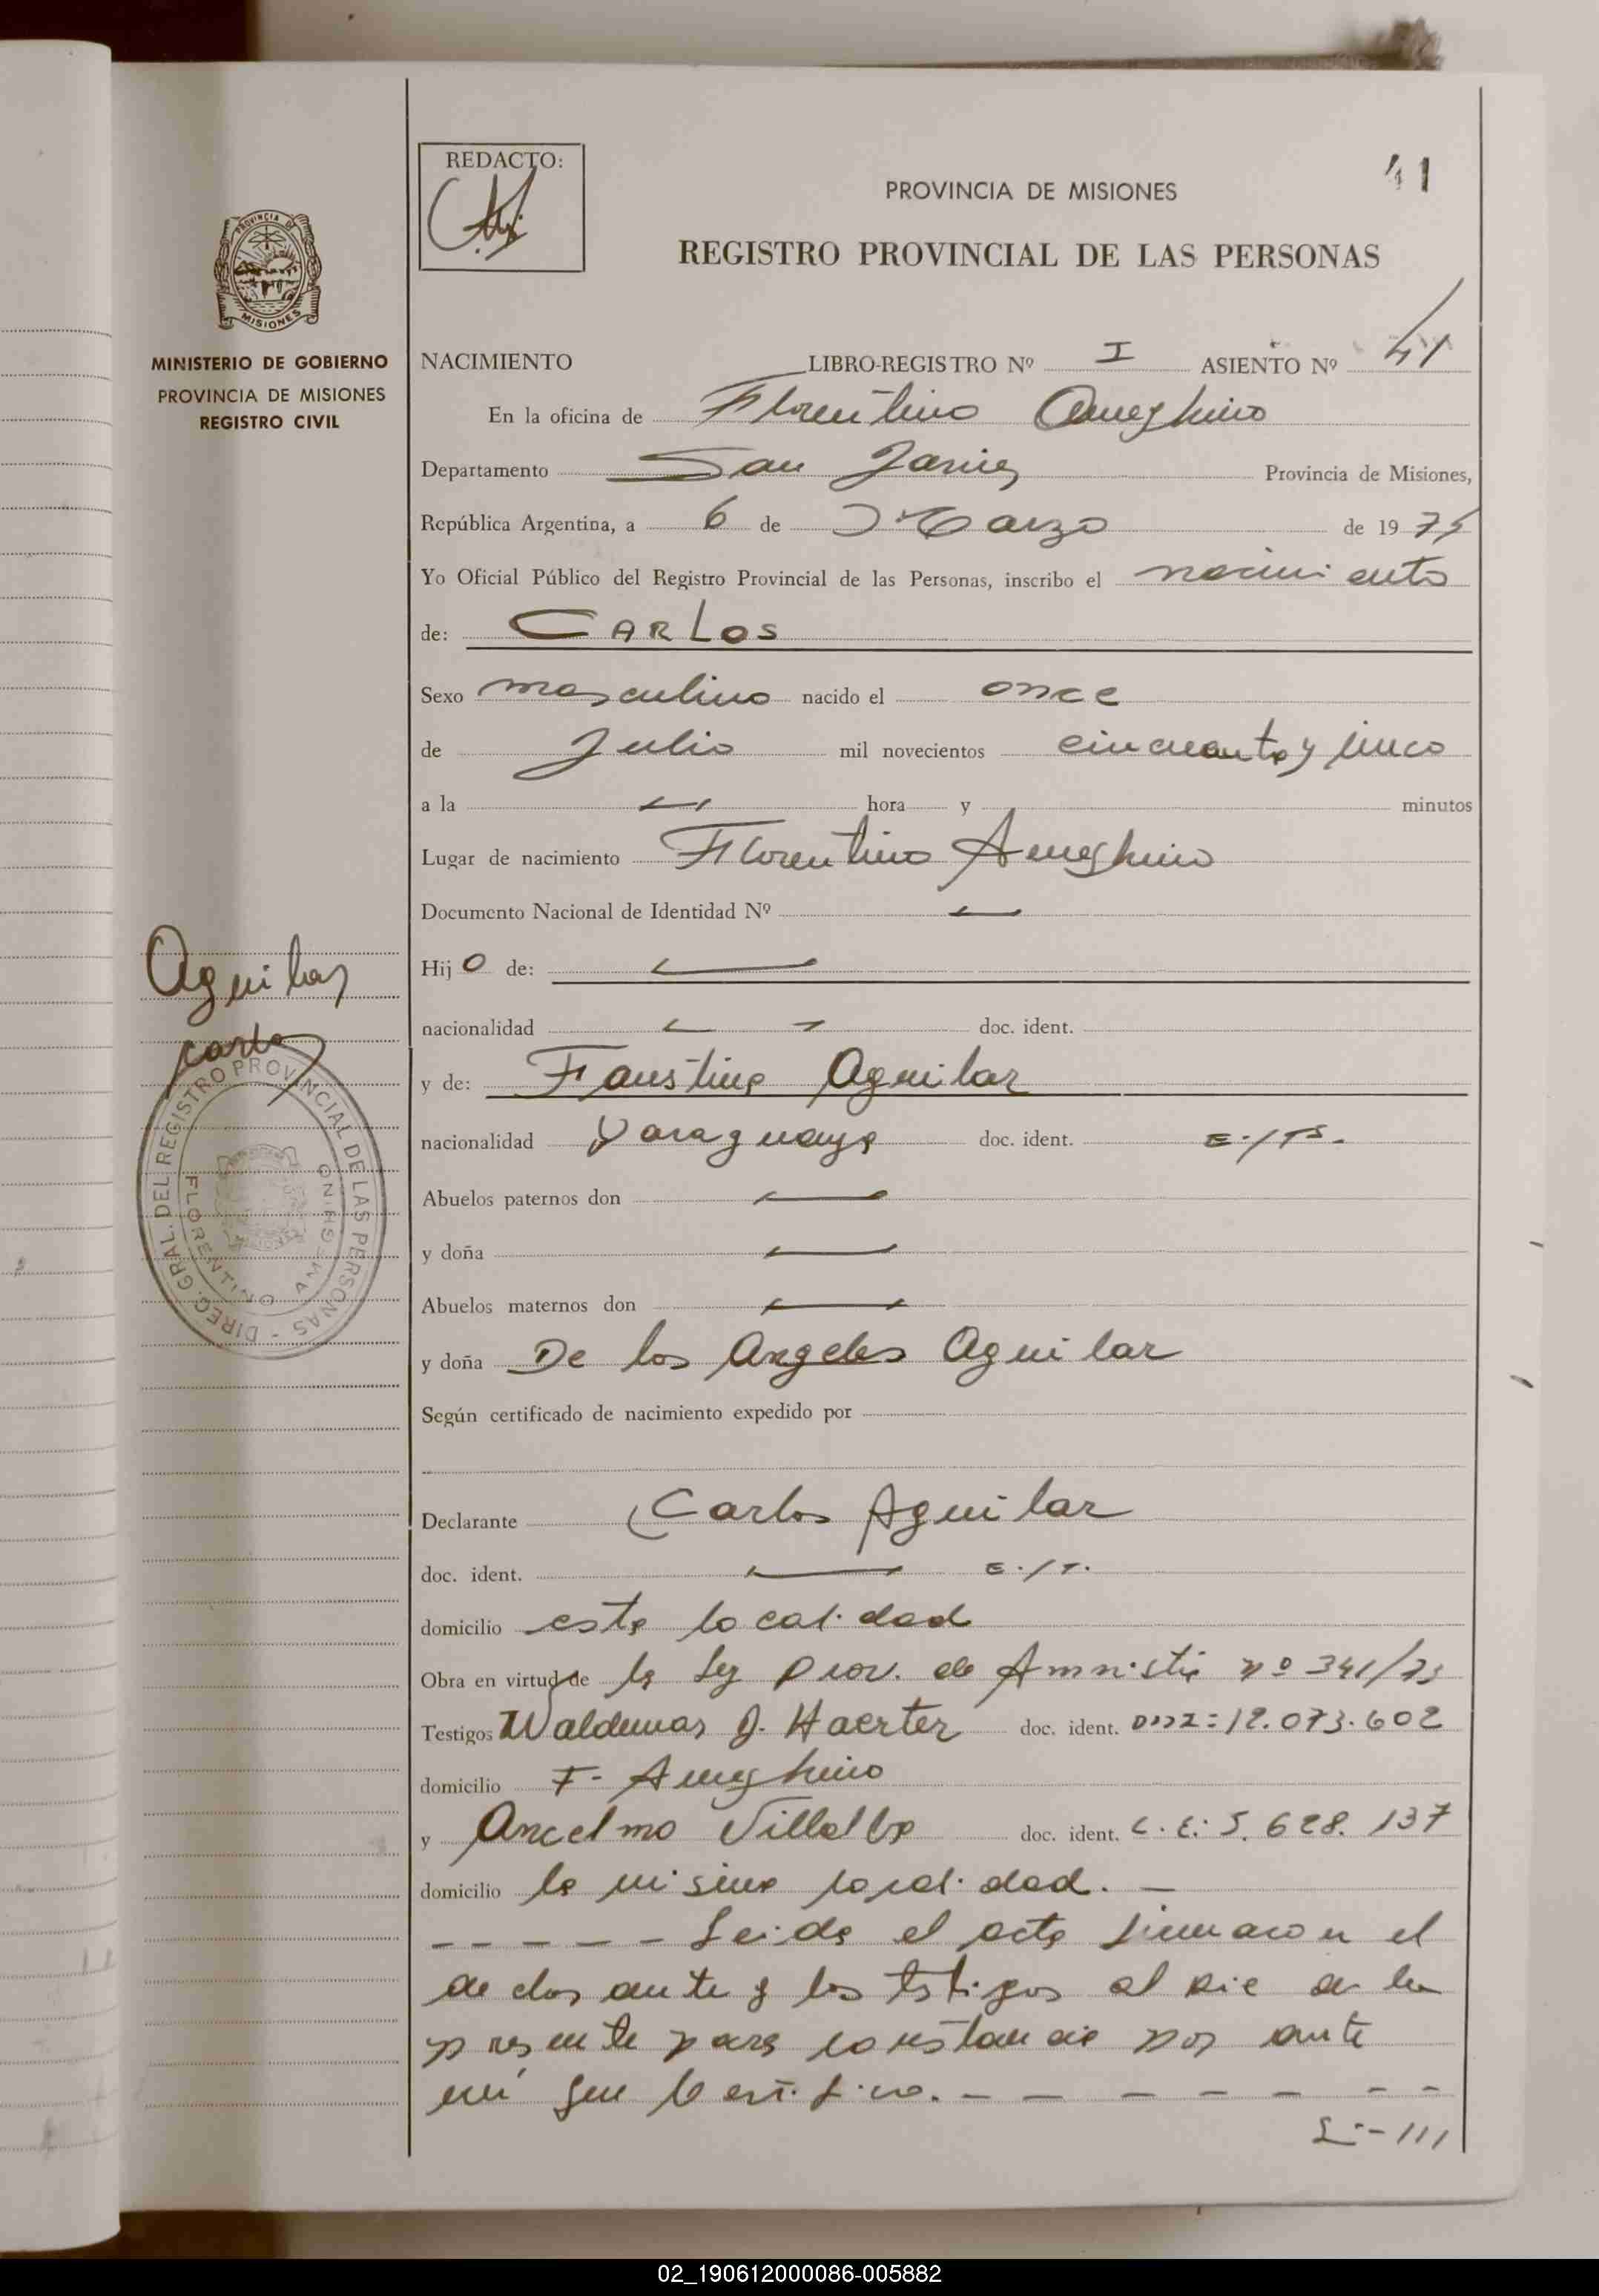 REDACTO:
41
PROVINCIA DE MISIONES
REGISTRO PROVINCIAL DE LAS PERSONAS
PROVINCIA DE
MISIONES
MINISTERIO DE GOBIERNO
PROVINCIA DE MISIONES
REGISTRO CIVIL
NACIMIENTO LIBRO-REGISTRO Nº I ASIENTO Nº 41
En la oficina de Florentino Ameghino
Departamento San Javier Provincia de Misiones,
República Argentina, a 6 de Marzo de 1975
Yo Oficial Público del Registro Provincial de las Personas, inscribo el nacimiento
de: CARLOS
Sexo masculino nacido el once
de Julio mil novecientos cincuenta y cinco
a la hora y minutos
Lugar de nacimiento Florentino Ameghino
Documento Nacional de Identidad Nº
Hijo de:
nacionalidad doc. ident.
y de: Faustina Aguilar
nacionalidad Paraguaya doc. ident.
Abuelos paternos don
y doña
Abuelos maternos don
y doña De los Angeles Aguilar
Según certificado de nacimiento expedido por
Declarante Carlos Aguilar
doc. ident. E./T.
domicilio esta localidad
Obra en virtud de la Ley Prov. de Amnistia nº 341/73
Testigos Waldemar J. Haerter doc. ident. DNI: 12.073.602
domicilio F. Ameghino
y Ancelmo Villalba doc. ident. L.E: 5.628.137
domicilio la misma localidad. -
- - - - - Leida el acta firmaron el
declarante y los testigos al pie de la
presente para constancia por ante
mi que certifico. - - - - - - -
Aguilar
Carlos
DIREC. GRAL. DEL REGISTRO PROVINCIAL DE LAS PERSONAS -
FLORENTINO AMEGHINO
02_190612000086-005882